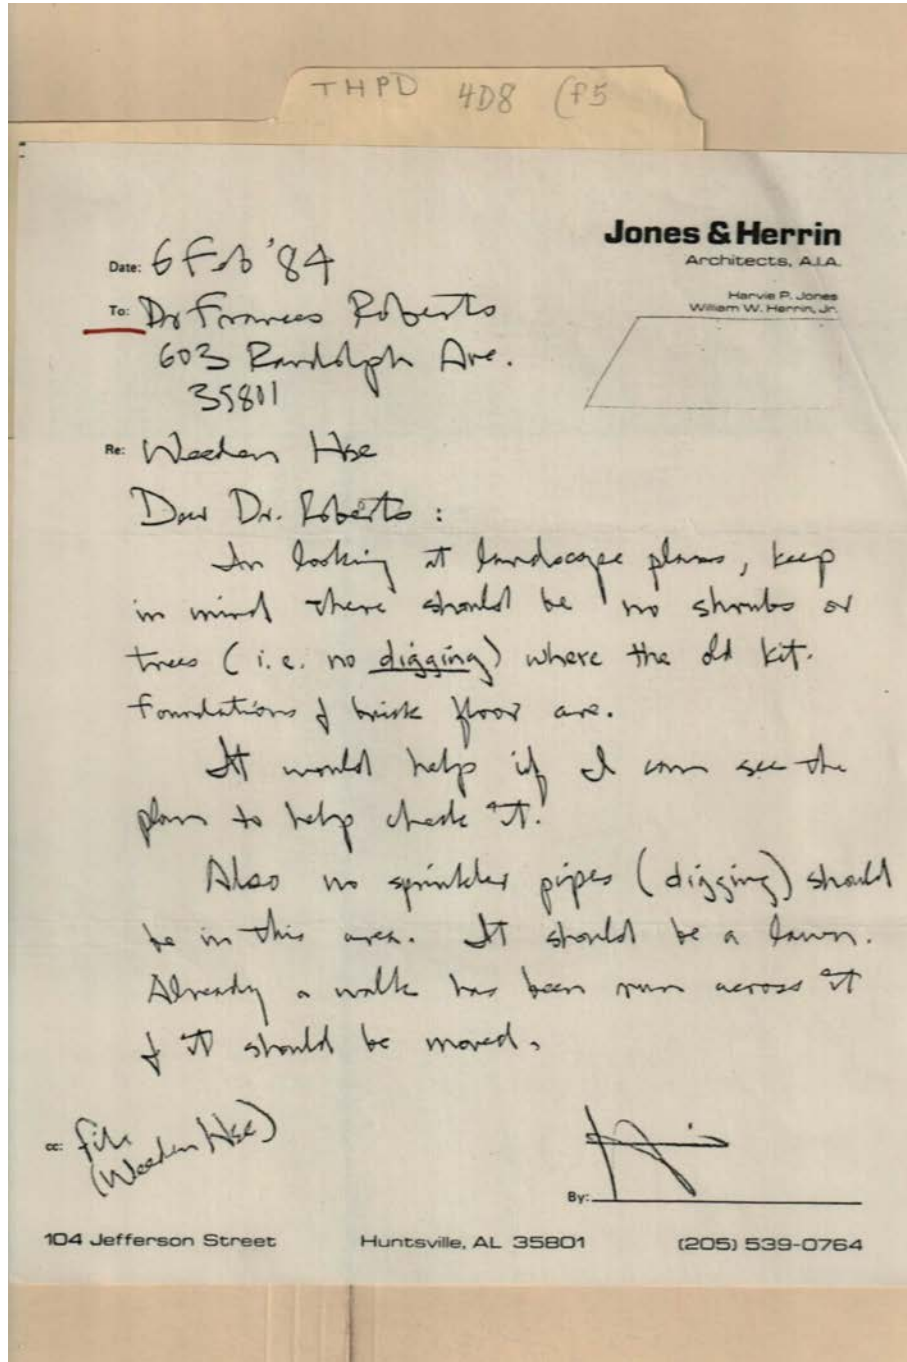 THPD 4D8 (f5
Jones & Herrin
Architects, A.I.A.
Harvie P. Jones
William W. Herrin, Jr.
Date: 6 Feb '84
To: Dr Frances Roberts
603 Randolph Ave.
35801
Re: Weeden Hse
Dear Dr. Roberts:
In looking at landscape plans, keep
in mind there should be no shrubs or
trees (i.e. no digging) where the old kit.
foundations & brick floor are.
It would help if I can see the
plan to help check it.
Also no sprinkler pipes (digging) should
be in this area. It should be a lawn.
Already a walk has been run across it
& it should be moved.
cc: file
(Weeden Hse)
By:
104 Jefferson Street Huntsville, AL 35801 (205) 539-0764